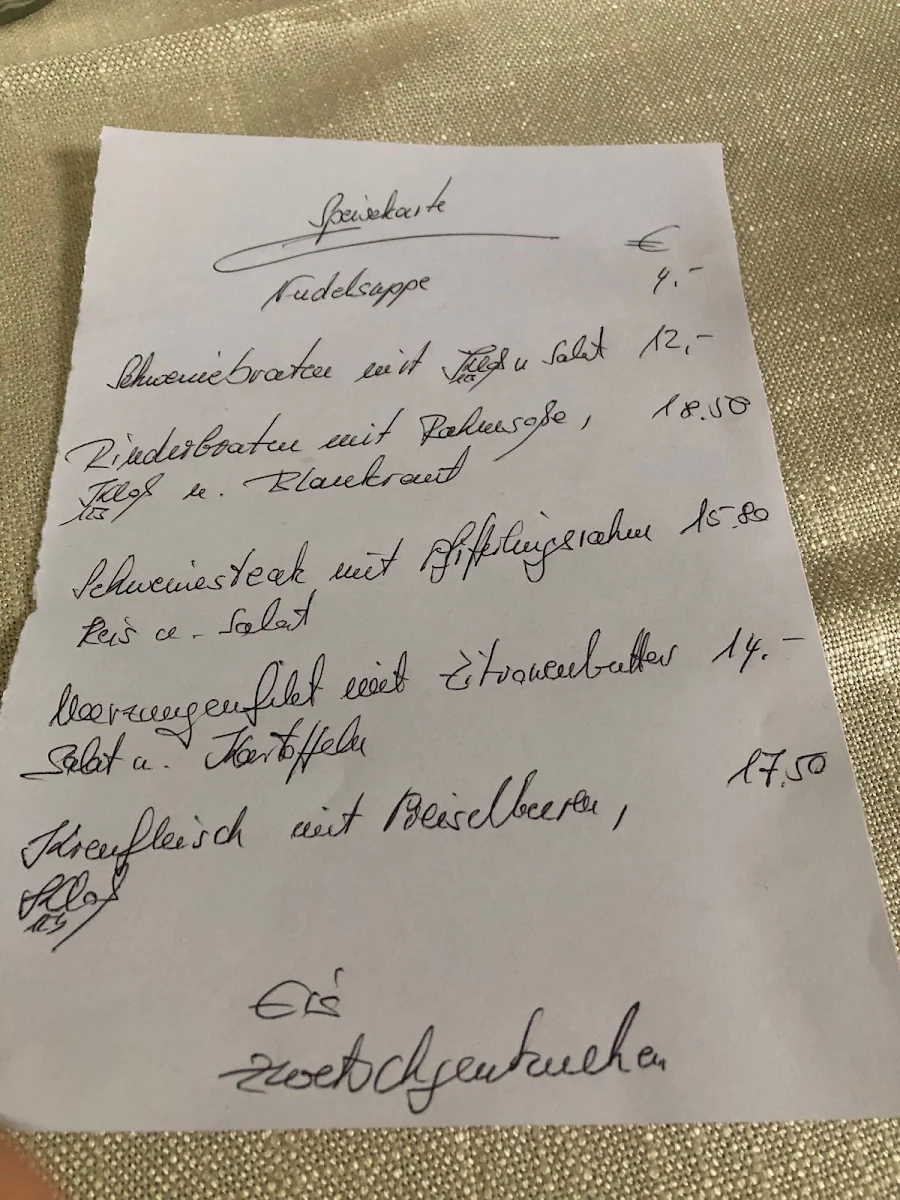 Speisekarte
€
Nudelsuppe 4.-
Schweinebraten mit Kloß u Salat 12,-
Rinderbraten mit Rahmsoße, 18.50
Kloß u. Blaukraut
Schweinesteak mit Pfifferlingsrahm 15.80
Reis u. Salat
Seezungenfilet mit Zitronenbutter 14.-
Salat u. Kartoffeln
Krenfleisch mit Preiselbeeren, 17.50
Kloß
Eis
Zwetschgenkuchen